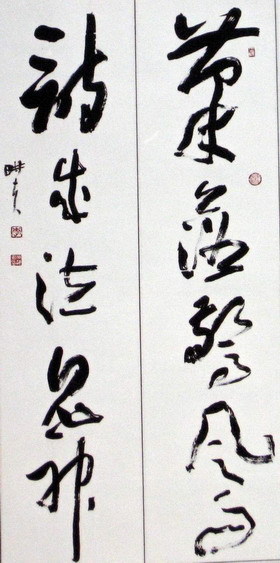 筆落驚風雨
詩成泣鬼神